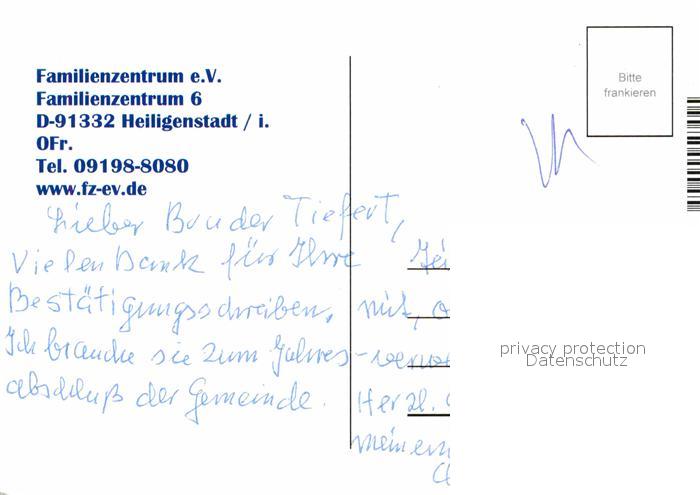 Familienzentrum e.V.
Familienzentrum 6
D-91332 Heiligenstadt / i.
OFr.
Tel. 09198-8080
www.fz-ev.de
Bitte
frankieren
Lieber Bruder Tiefert,
Vielen Dank für Ihre
Bestätigungsschreiben.
Ich brauche sie zum Jahres-
abschluß der Gemeinde.
mit,
Herzl.
meinem
privacy protection
Datenschutz